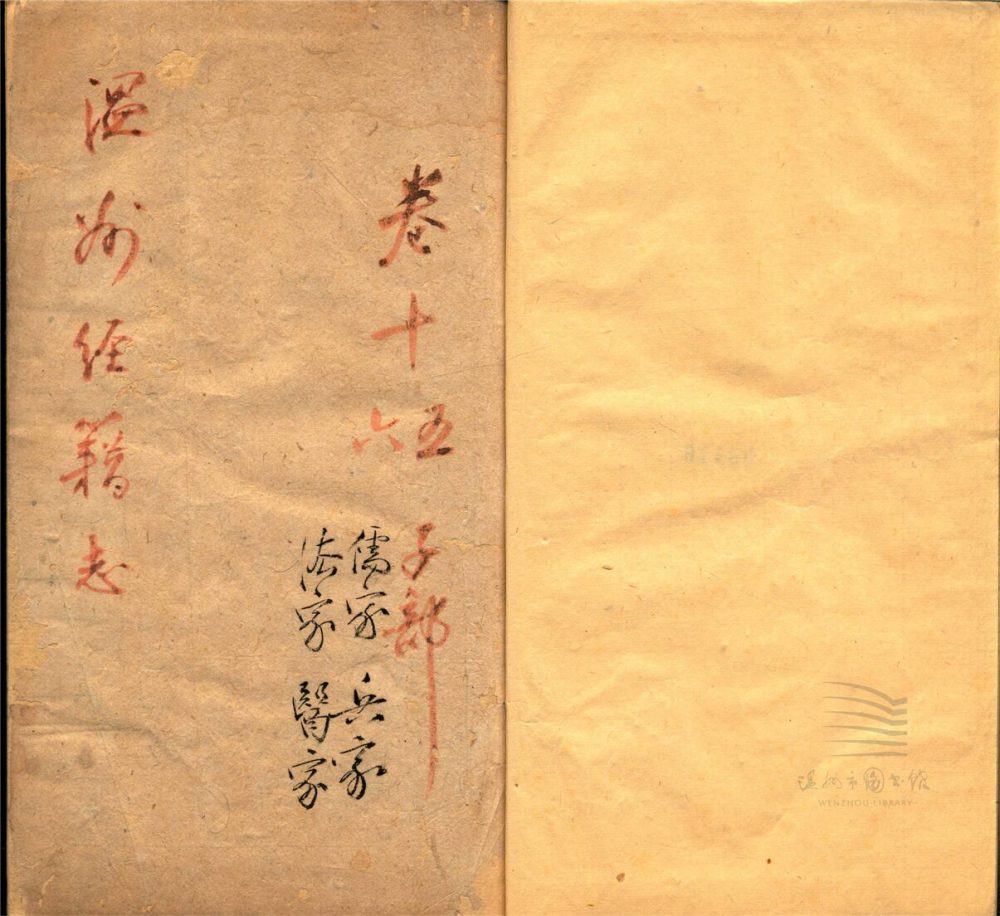 卷十五六子部
儒家 兵家
法家 醫家
温州經籍志
温州市图书馆
WENZHOU LIBRARY